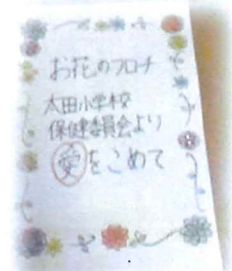 お花のブローチ
太田小学校
保健委員会より
愛をこめて